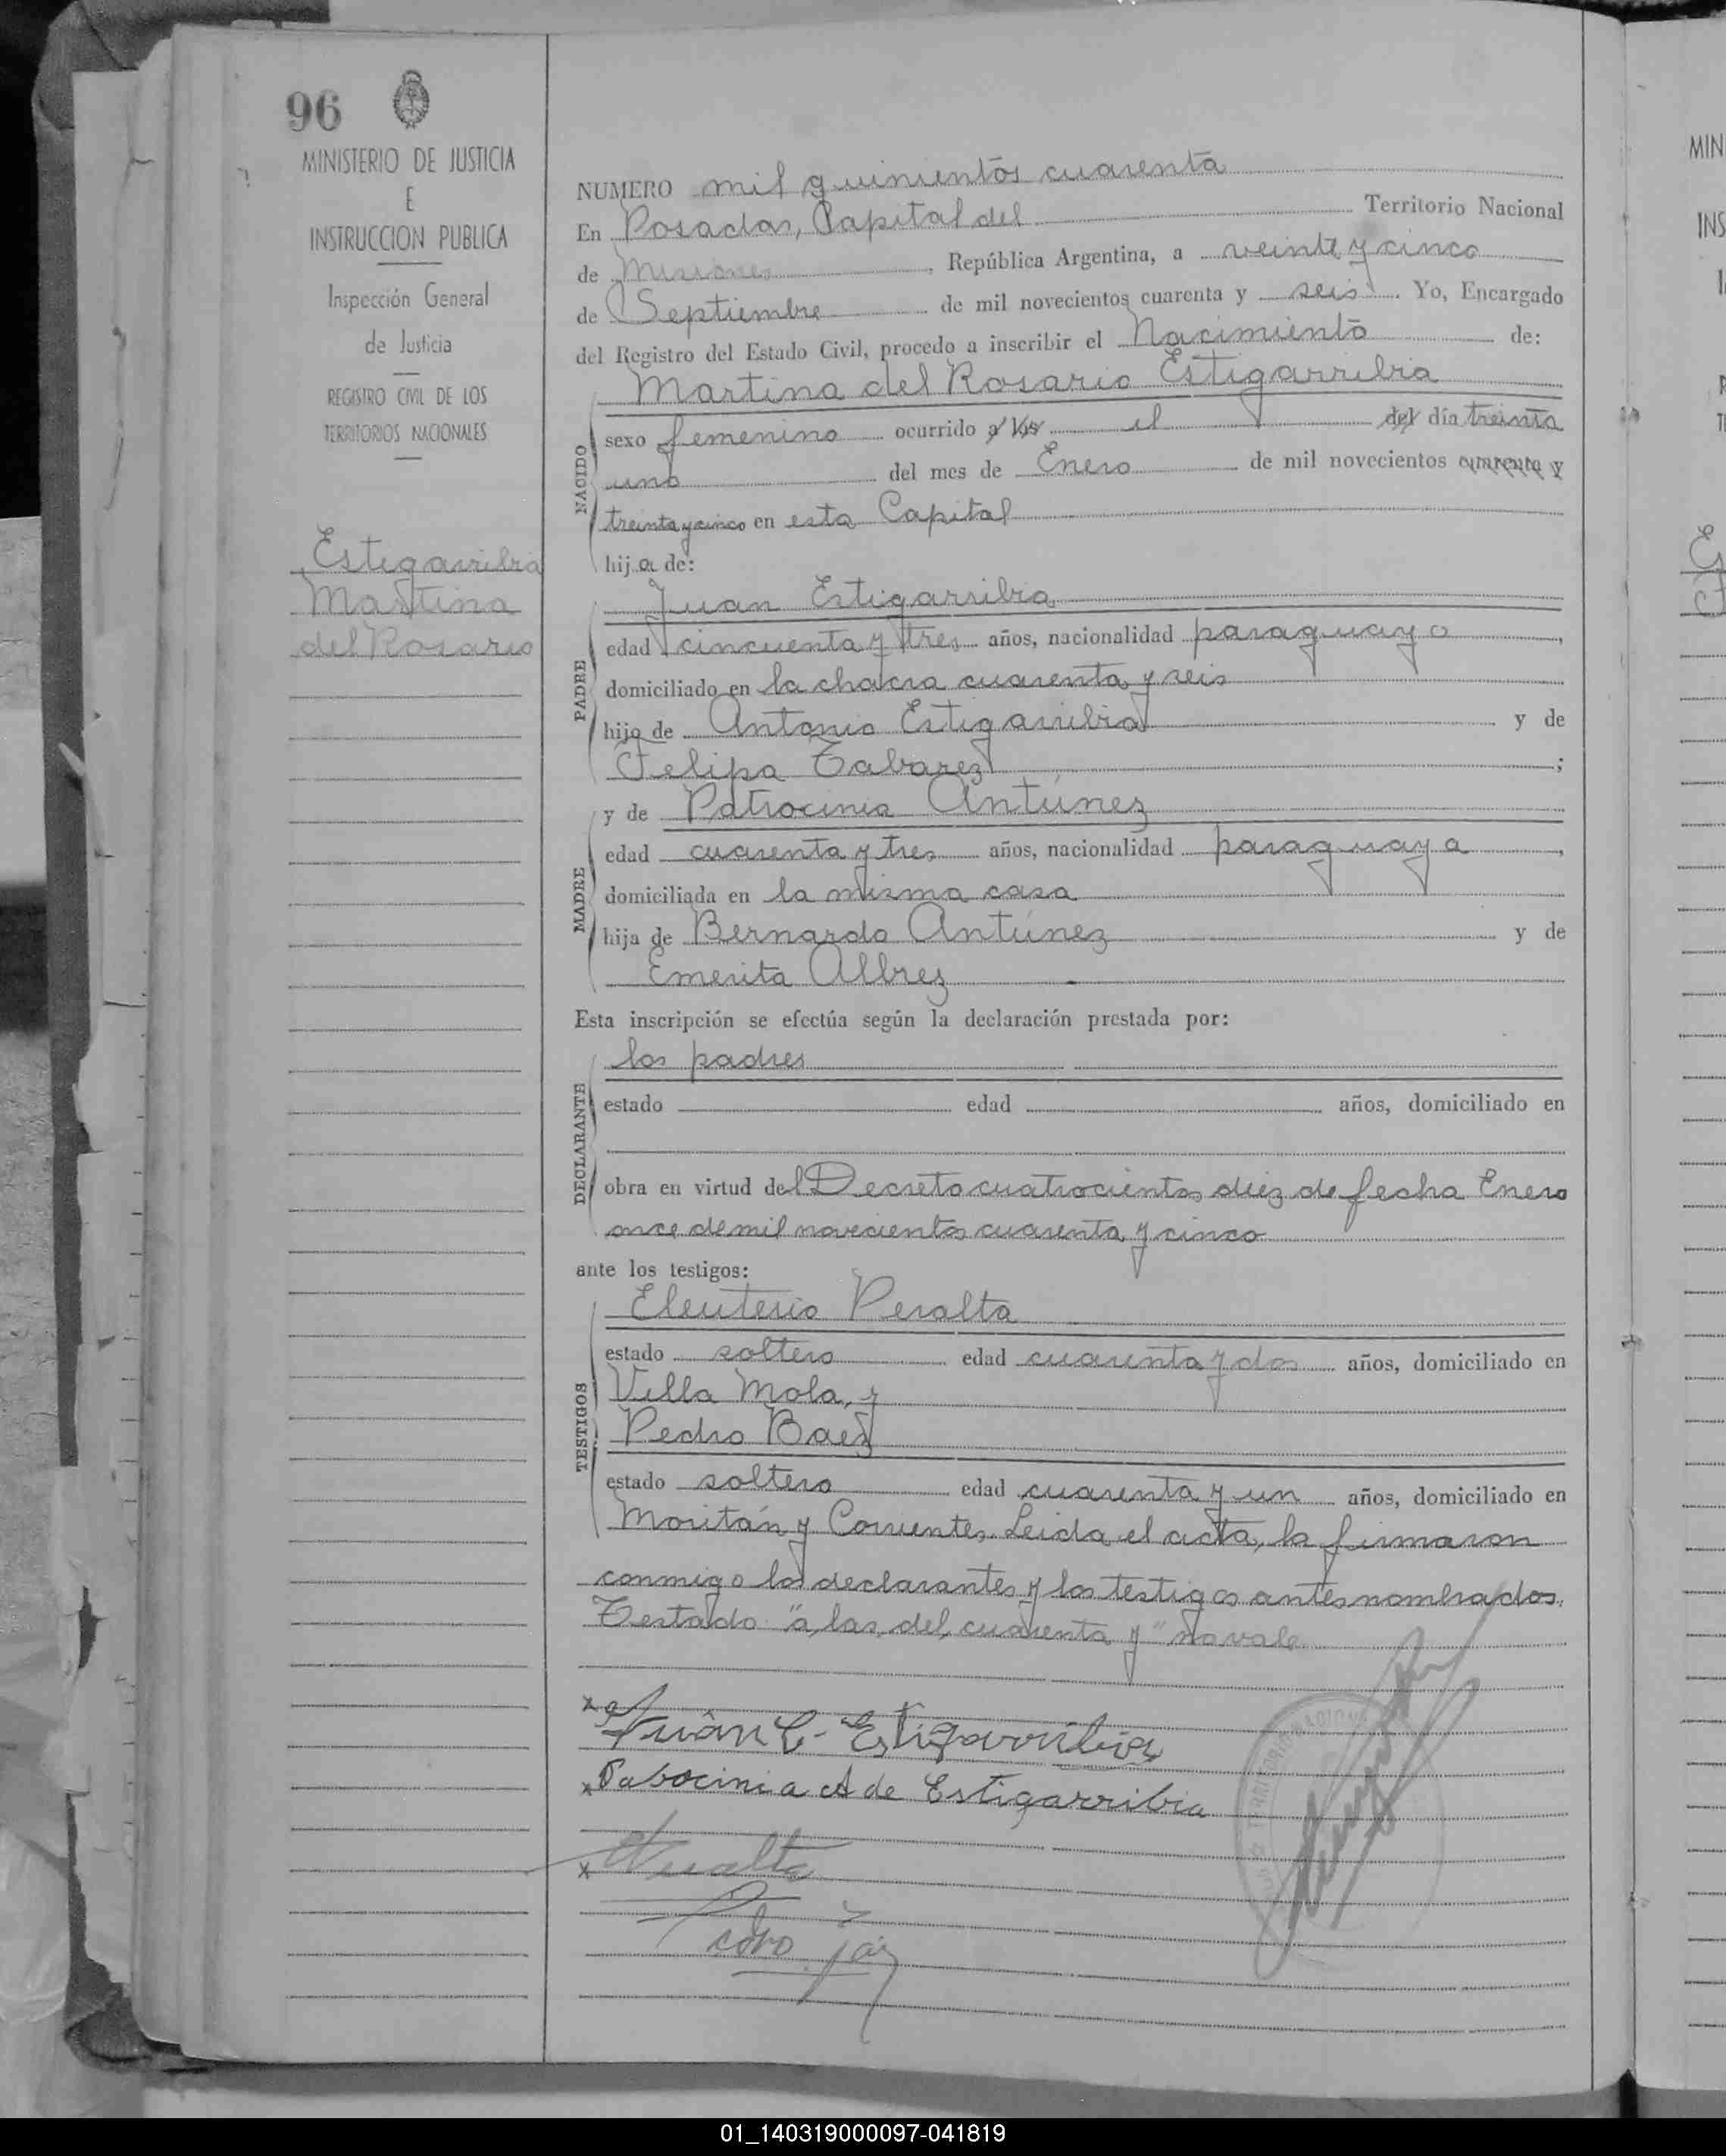 96
MINISTERIO DE JUSTICIA
E
INSTRUCCION PUBLICA
Inspección General
de Justicia
REGISTRO CIVIL DE LOS
TERRITORIOS NACIONALES
Estigarribia
Martina
del Rosario
NUMERO mil quinientos cuarenta
En Posadas, Capital del Territorio Nacional
de Misiones, República Argentina, a veinte y cinco
de Septiembre de mil novecientos cuarenta y seis. Yo, Encargado
del Registro del Estado Civil, procedo a inscribir el Nacimiento de:
Martina del Rosario Estigarribia
NACIDO
sexo femenino ocurrido a las el del día treinta
uno del mes de Enero de mil novecientos cuarenta y
treinta y cinco en esta Capital
hija de:
PADRE
Juan Estigarribia
edad cincuenta y tres años, nacionalidad paraguayo,
domiciliado en la chacra cuarenta y seis
hijo de Antonio Estigarribia y de
Felipa Tabarez;
MADRE
y de Patrocinia Antúnez
edad cuarenta y tres años, nacionalidad paraguaya,
domiciliada en la misma casa
hija de Bernardo Antúnez y de
Emerita Albrez
Esta inscripción se efectúa según la declaración prestada por:
DECLARANTE
los padres
estado edad años, domiciliado en
obra en virtud del Decreto cuatrocientos diez de fecha Enero
once de mil novecientos cuarenta y cinco
ante los testigos:
TESTIGOS
Eleuterio Peralta
estado soltero edad cuarenta y dos años, domiciliado en
Villa Mola, y
Pedro Baez
estado soltero edad cuarenta y un años, domiciliado en
Moritán y Corrientes. Leida el acta, la firmaron
conmigo los declarantes y los testigos antes nombrados.
Testado "a, las, del, cuarenta y" no vale
Juan C. Estigarribia
Patrocinia A de Estigarribia
01_140319000097-041819